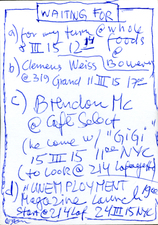 WAITING FOR
a) for my turn @ whole
8 III 15 12 foods
@
b) Clemens Weiss Bowery
@ 319 Grand 11 III 15 17
c) Brendon Mc
@ Café Select
(he came w/ "GiGi"
15 III 15 11 NYC
(to look @ 214 Lafayette)
d) "UNEMPLOYMENT
Magazine Launch
Start @ 214 Laf. 24 III 15 NYC